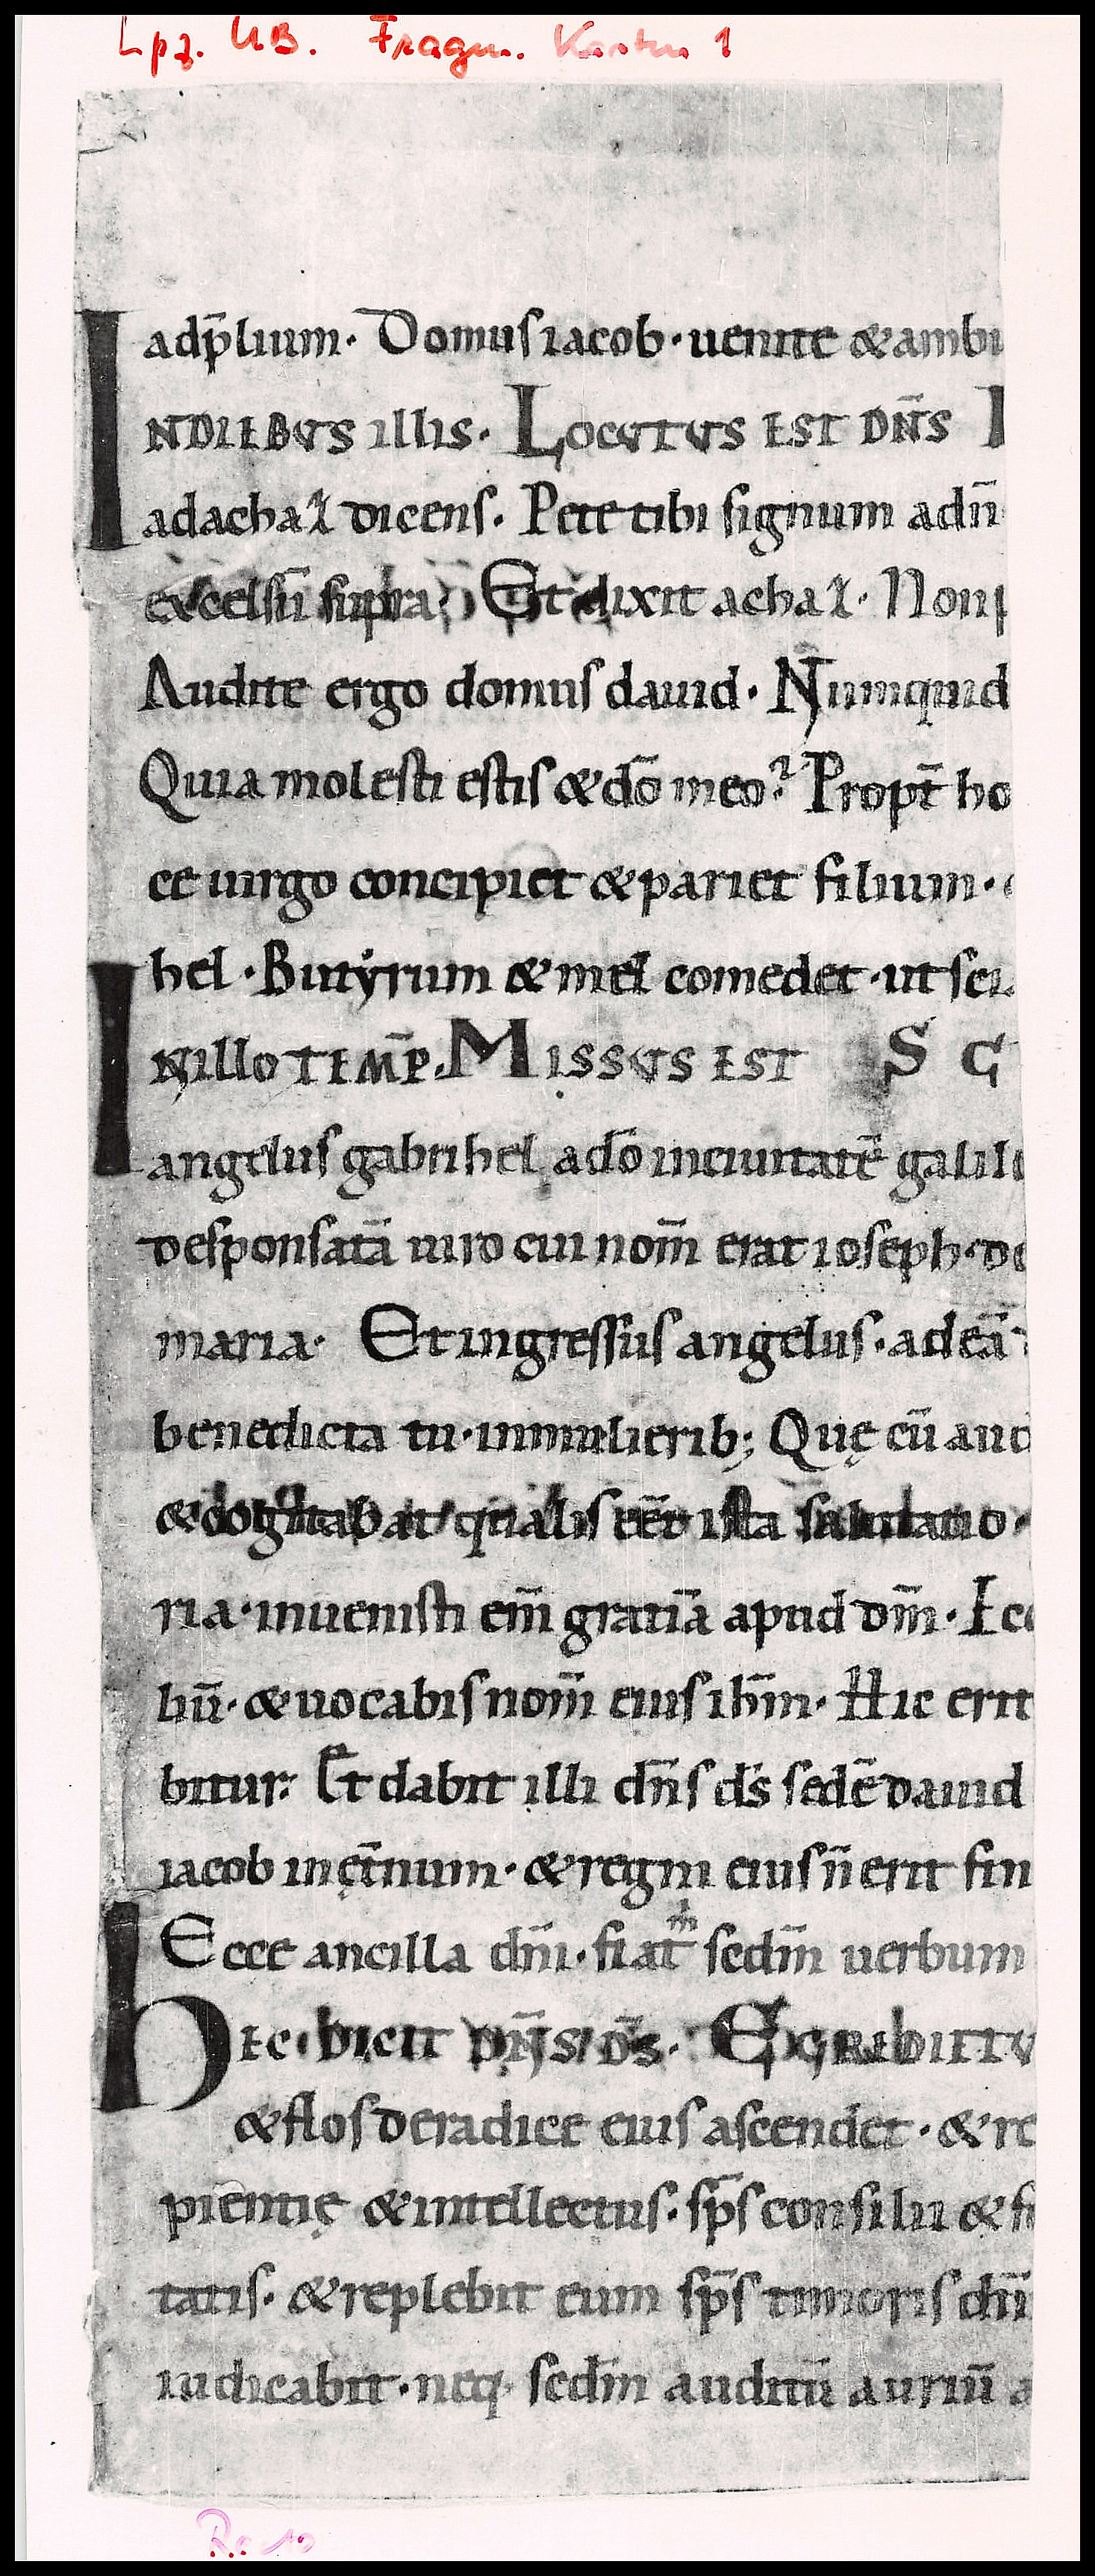 Lpz. UB. Fragm. Kasten 1
adp̄lium. Domus iacob. uenite & ambu
INDIEBUS illis. LOCUTUS EST DN̄S
ad achaz dicens. Pete tibi signum adn̄
excelsū supra. Et dixit achaz. Non
Audite ergo domus dauid. Numquid
Quia molesti estis & dō meo? Propt̄ ho
ce uirgo concipiet & pariet filium.
hel. Butyrum & mel comedet. ut sci
INillo TEMP̄. MISSUS EST S G
angelus gabrihel a dō in ciuitatē galile
desponsatā uiro cui nom̄ erat ioseph. de
maria. Et ingressus angelus. ad eā
benedicta tu. in mulierib; Quę cū aud
& cogitabat qualis eēt ista salutatio.
ria. inuenisti em̄ gratiā apud dm̄. Ecc
liū. & uocabis nom̄ eius ih̄m. Hic erit
bitur. Et dabit illi dn̄s ds̄ sedē dauid
iacob in ęt̄num. & regni eius n̄ erit fin
Ecce ancilla dn̄i. fiat m̄ sedm̄ uerbum
hEC. DICIT DN̄S D̄S. EGREDIETU
& flos de radice eius ascendet. & re
pientię & intellectus. sp̄s consilii & f
tatis. & replebit eum sp̄s timoris dn̄i
iudicabit. neq. sedm̄ auditū auriū a